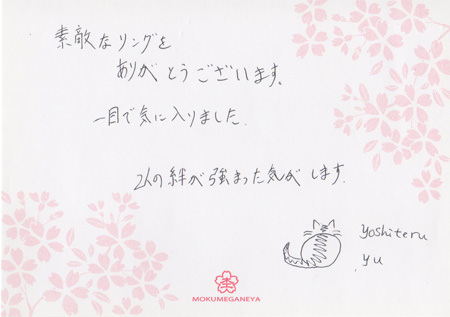 素敵なリングを
ありがとうございます。
一目で気に入りました.
2人の絆が強まった気がします.
yoshiteru
yu
MOKUMEGANEYA